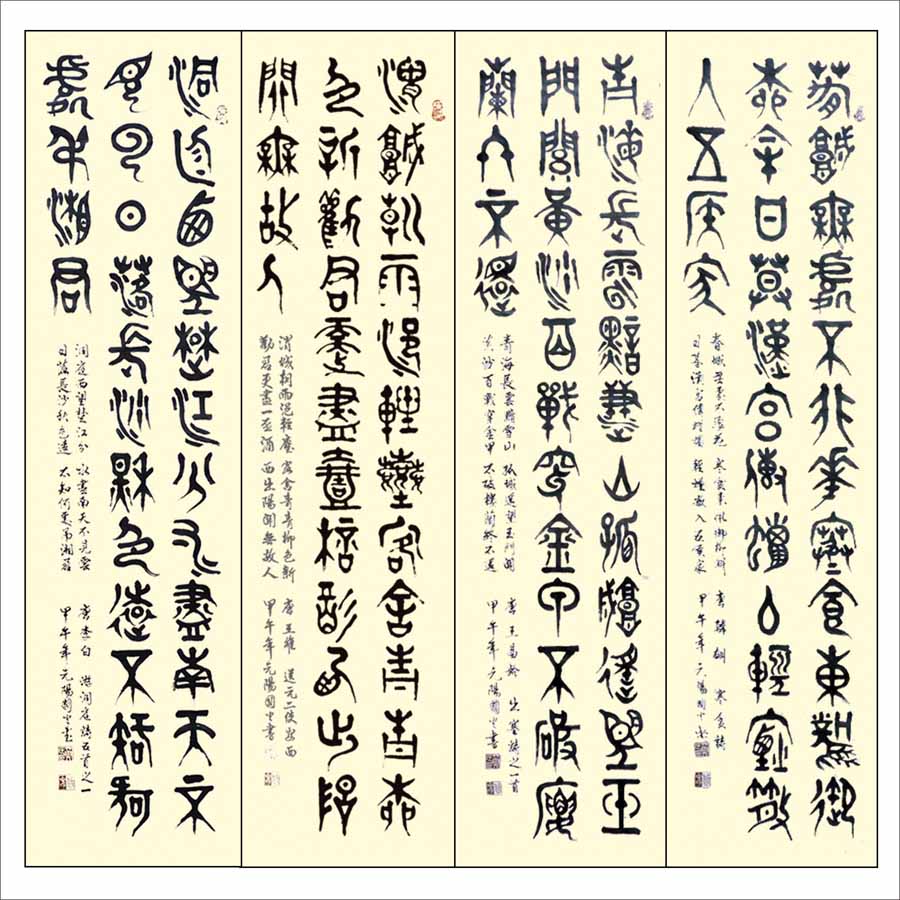 春城無處不飛華寒食東風御
柳斜日暮漢宮傳蠟燭輕煙散
入五侯家
春城無處不飛花 寒食東風御柳斜 唐 韓翃 寒食詩
日暮漢宮傳蠟燭 輕煙散入五侯家 甲午年 元陽
青海長雲黯雪山孤城遙望玉
門關黃沙百戰穿金甲不破樓
蘭終不還
青海長雲暗雪山 孤城遙望玉門關 唐 王昌齡 出塞詩之一首
黃沙百戰穿金甲 不破樓蘭終不還 甲午年 元陽 書
渭城朝雨浥輕塵客舍青青柳
色新勸君更盡壹杯酒西出陽
關無故人
渭城朝雨浥輕塵 客舍青青柳色新 唐 王維 送元二使安西
勸君更盡一杯酒 西出陽關無故人 甲午年 元陽 書
洞庭西望楚江分水盡南天不
見雲日落長沙秋色遠不知何
處弔湘君
洞庭西望楚江分 水盡南天不見雲 唐 李白 游洞庭詩五首之一
日落長沙秋色遠 不知何處弔湘君 甲午年 元陽